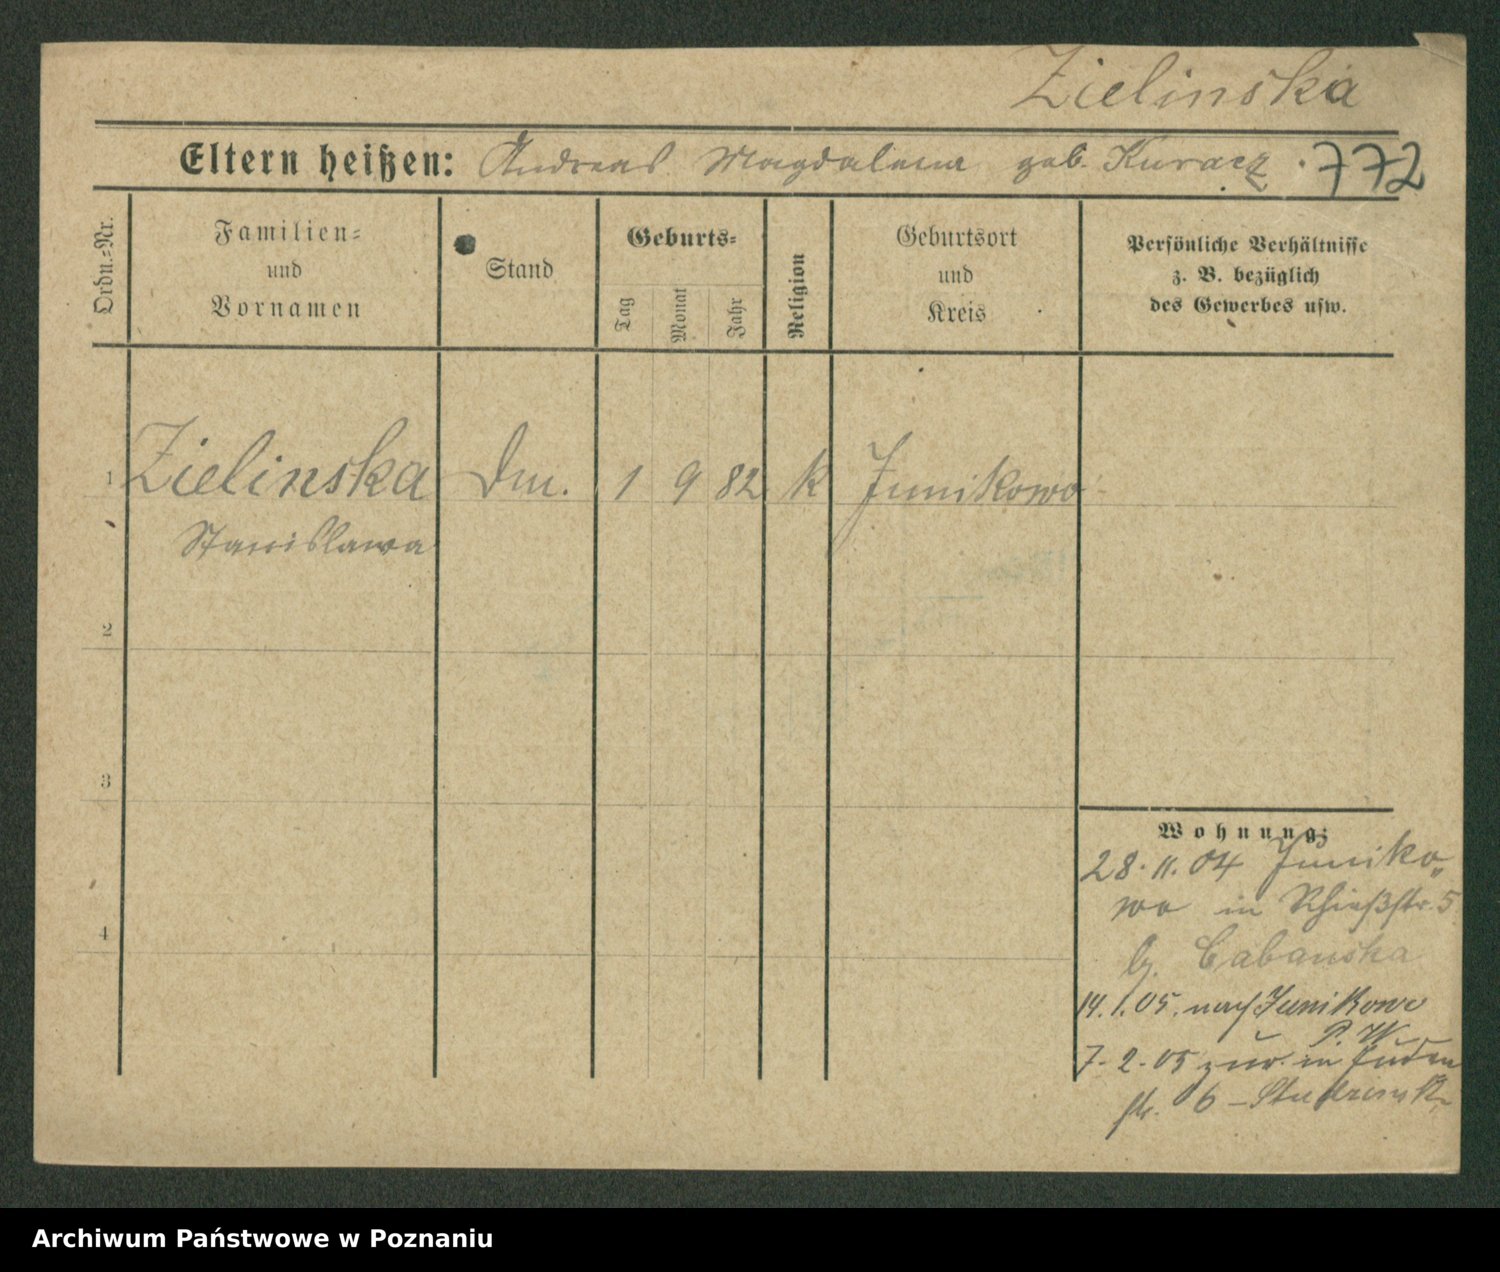 Zielinska
Eltern heißen: Andreas Magdalena geb. Kuracz. 772
Ordn.=Nr.
Familien=
und
Vornamen
Stand
Geburts=
Tag
Monat
Jahr
Religion
Geburtsort
und
Kreis
Persönliche Verhältnisse
z. B. bezüglich
des Gewerbes usw.
1 Zielinska Dm. 1 9 82 k Junikowo
Stanislawa
2
3
4
Wohnung:
28.11.04 Juniko„
wo in Schießstr. 5
b. Cabanska
14.1.05. nach Junikowo
P. W.
7-2-05 zur. in Juden
str. 6 –
Archiwum Państwowe w Poznaniu